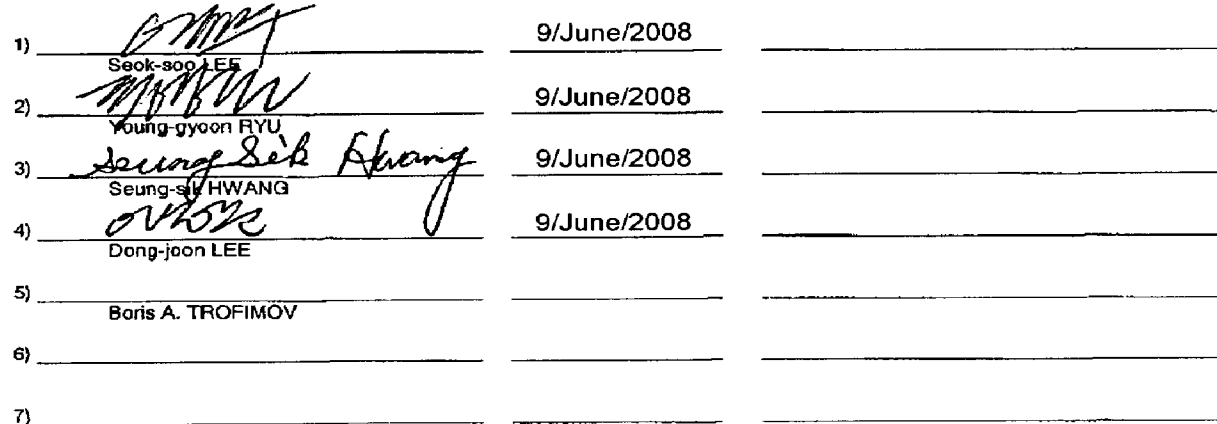 1) 9/June/2008
Seok-soo LEE
2) 9/June/2008
Young-gyoon RYU
3) Seung Sik Hwang 9/June/2008
Seung-sik HWANG
4) 9/June/2008
Dong-joon LEE
5)
Boris A. TROFIMOV
6)
7)